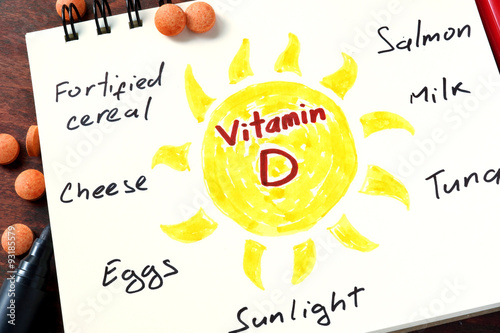 Fortified
cereal
Salmon
Milk
Vitamin
D
Cheese
Tuna
Eggs
Sunlight
Adobe Stock | #93185579